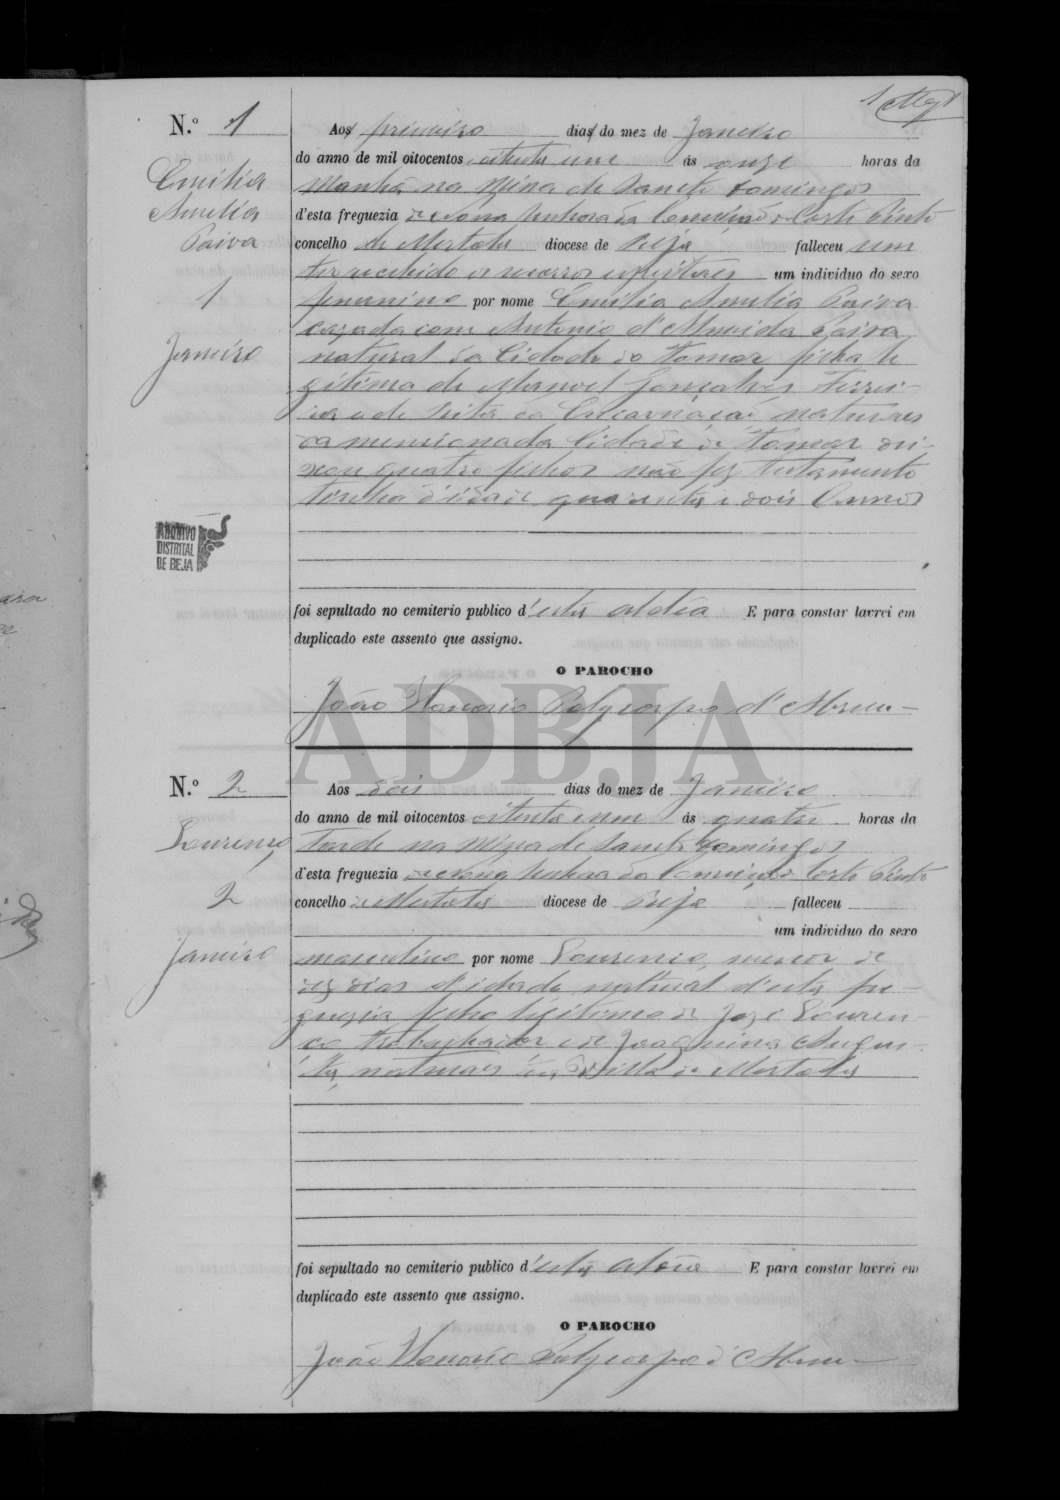 1
N.º 1
Emilia
Amelia
Paiva
1
Janeiro
Aos primeiro dias do mez de Janeiro
do anno de mil oitocentos oitenta e um ás onze horas da
Manhã na Mina de Sancto Domingos
d'esta freguezia de Nossa Senhora da Conceição de Corte Pinto
concelho de Mertola diocese de Beja falleceu sem
ter recebido os socorros um individuo do sexo
femenino por nome Emilia Amelia Paiva
cazada com Antonio d'Almeida Paiva
natural da Cidade de Tomar filha le
gitima de Manoel Gonçalves Ferrei-
ra e de Rita da Encarnação naturaes
da mencionada Cidade de Tomar dei-
xou quatro filhos não fez testamento
tinha d'idade quarenta e dois annos
ARQUIVO
DISTRITAL
DE BEJA
foi sepultado no cemiterio publico d'esta aldêa E para constar lavrei em
duplicado este assento que assigno.
O PAROCHO
João Honorio Polycarpo d'Abreu
ADBJA
N.º 2
Lourenço
2
Janeiro
Aos dois dias do mez de Janeiro
do anno de mil oitocentos oitenta e um ás quatro horas da
Tarde na Mina de Sancto Domingos
d'esta freguezia de Nossa Senhora da Conceição de Corte Pinto
concelho de Mertola diocese de Beja falleceu
um individuo do sexo
masculino por nome Lourenço, menor de
dez dias d'idade natural d'esta fre-
guezia filho legitimo de José Louren-
ço trabalhador e de Joaquina Augus-
ta, naturaes da Villa de Mertola
foi sepultado no cemiterio publico d'esta aldêa E para constar lavrei em
duplicado este assento que assigno.
O PAROCHO
João Honorio Polycarpo d'Abreu